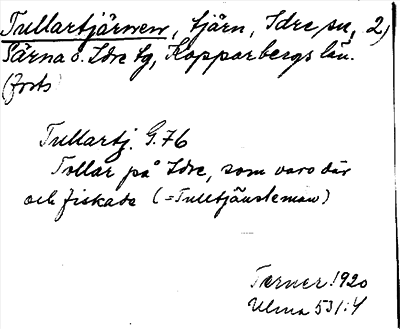 Tullartjärnen, tjärn, Idre sn, 2)
Särna o. Idre tg, Kopparbergs län.
(forts)
Tullartj. G.76
Tollar på Idre, som varo där
och fiskade (=Tulltjänstemän)
Terner 1920
Ulma 531:4